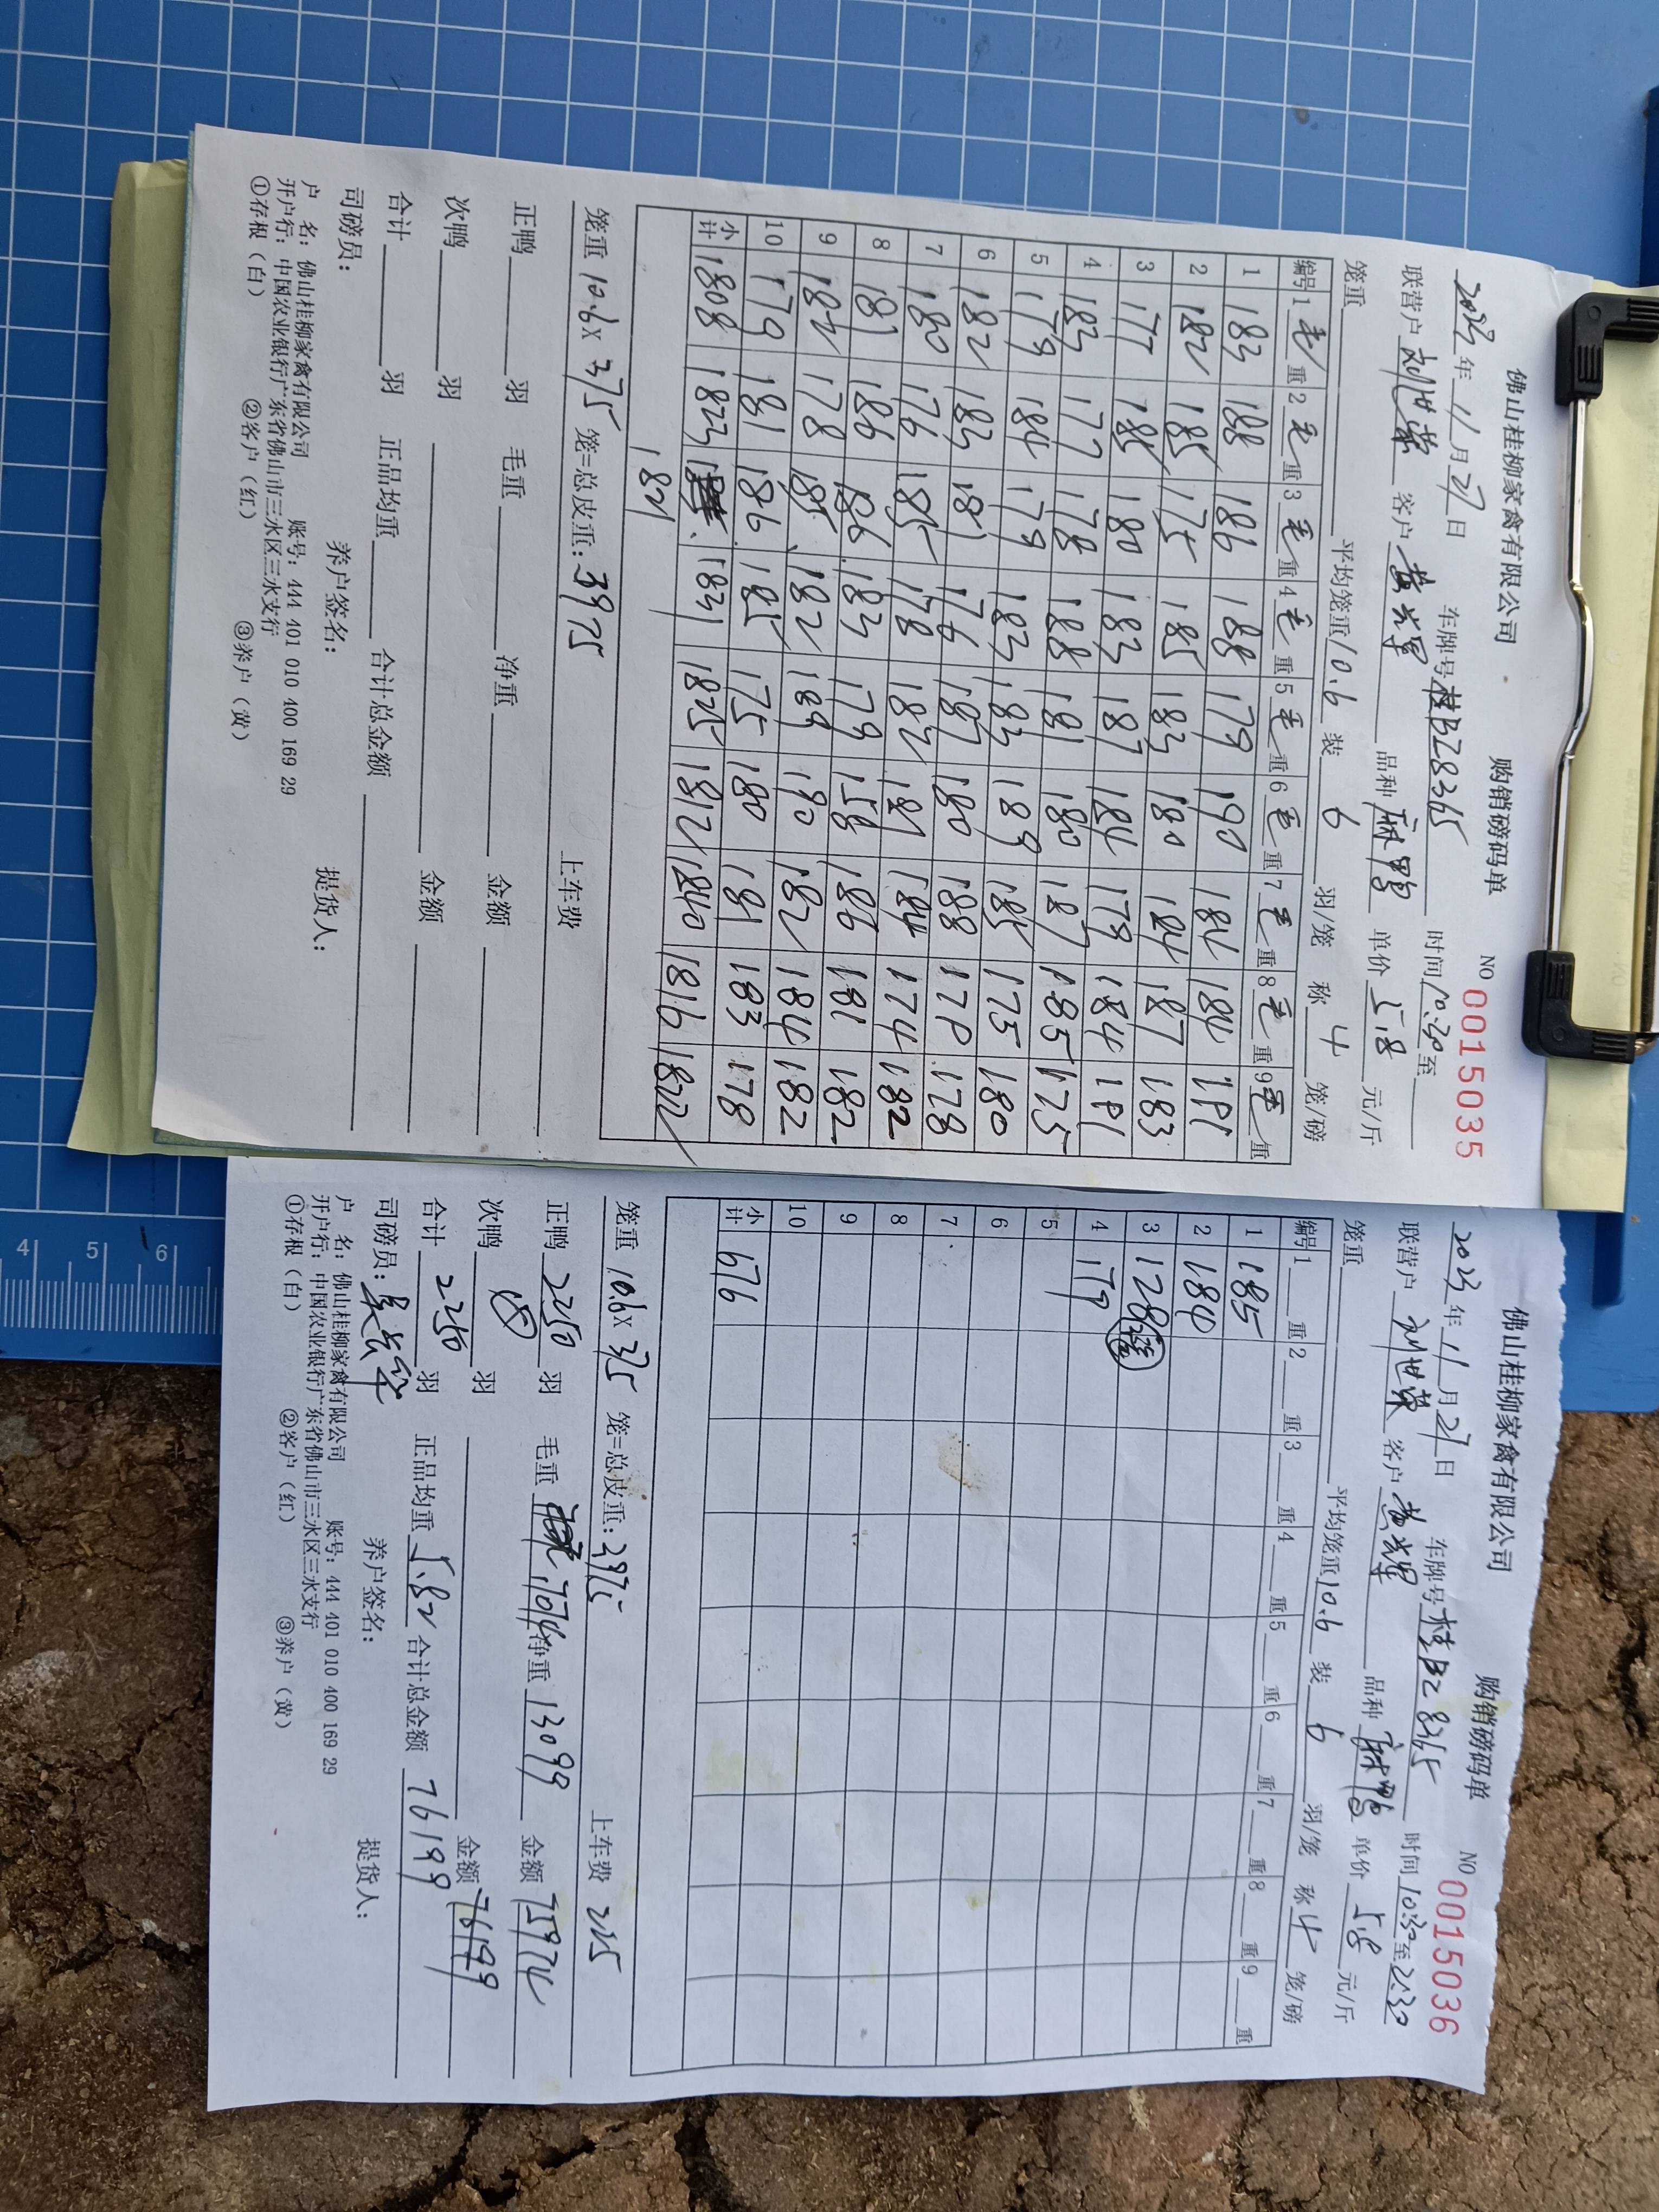 佛山桂柳家禽有限公司 购销磅码单 NO 0015035
2023年11月27日 车牌号桂BZ8365 时间10:30至
联营户 刘世荣 客户 黄光辉 品种 麻鸭 单价 5.8 元/斤
笼重 平均笼重10.6 装 6 羽/笼 称 4 笼/磅
编号 1毛重 2毛重 3毛重 4毛重 5毛重 6毛重 7毛重 8毛重 9毛重
1 183 188 186 188 179 190 184 184 181
2 182 185 175 185 183 180 184 187 183
3 177 185 180 183 187 184 179 184 181
4 183 177 178 188 181 180 187 185 175
5 179 184 179 183 183 189 185 175 180
6 182 183 181 176 187 180 188 179 178
7 180 176 185 178 182 181 184 174 182
8 181 186 186 183 179 158 186 181 182
9 182 178 185 182 189 190 182 184 182
10 179 181 186 185 175 180 181 183 178
小计 1808 1823 1831 1825 1812 1840 1816 1822
1821
笼重 10.6 X 375 笼=总皮重: 3975 上车费
正鸭 羽 毛重 净重 金额
次鸭 羽 金额
合计 羽 正品均重 合计总金额
司磅员: 养户签名: 提货人:
户 名: 佛山桂柳家禽有限公司 账号: 444 401 010 400 169 29
开户行: 中国农业银行广东省佛山市三水区三水支行
①存根(白) ②客户(红) ③养户(黄)
佛山桂柳家禽有限公司 购销磅码单 NO 0015036
2023年11月27日 车牌号桂BZ8365 时间10:30至2:30
联营户 刘世荣 客户 黄光辉 品种 麻鸭 单价 5.8 元/斤
笼重 平均笼重10.6 装 6 羽/笼 称 4 笼/磅
编号 1 重 2 重 3 重 4 重 5 重 6 重 7 重 8 重 9 重
1 185
2 184
3 128
4 179
5
6
7
8
9
10
小计 676
笼重 10.6 X 375 笼=总皮重: 3975 上车费 225
正鸭 2250 羽 毛重 17074 净重 13099 金额 75974
次鸭 羽 金额 76199
合计 2250 羽 正品均重 5.82 合计总金额 76199
司磅员: 养户签名: 提货人:
户 名: 佛山桂柳家禽有限公司 账号: 444 401 010 400 169 29
开户行: 中国农业银行广东省佛山市三水区三水支行
①存根(白) ②客户(红) ③养户(黄)
4 5 6